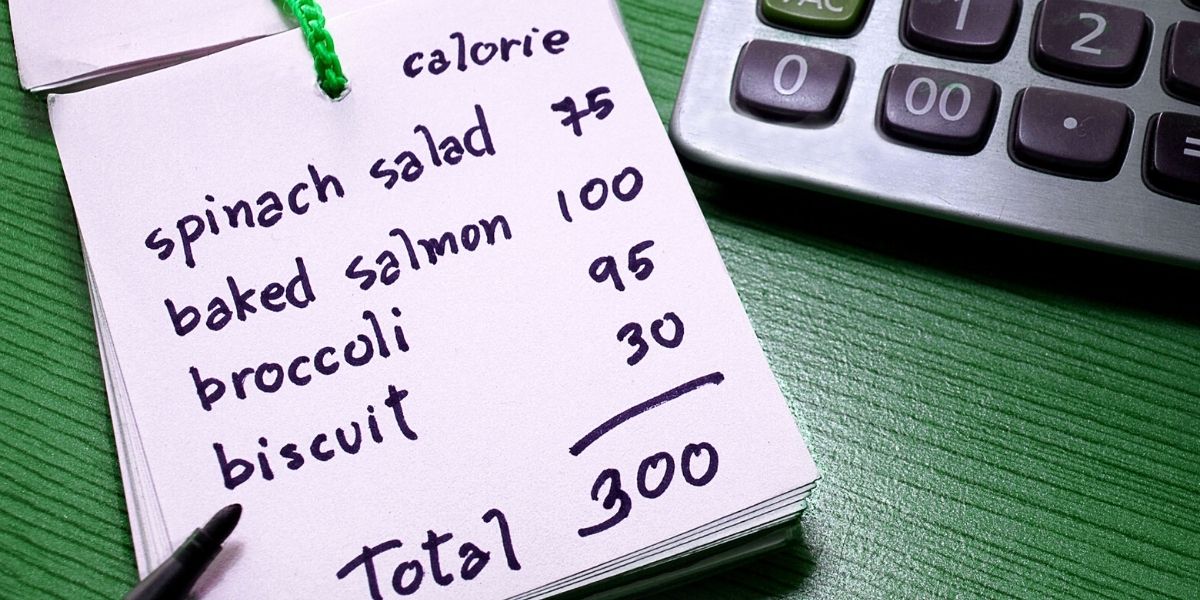 calorie
spinach salad 75
baked salmon 100
broccoli 95
biscuit 30
Total 300
AC 1 2
0 00 .
=